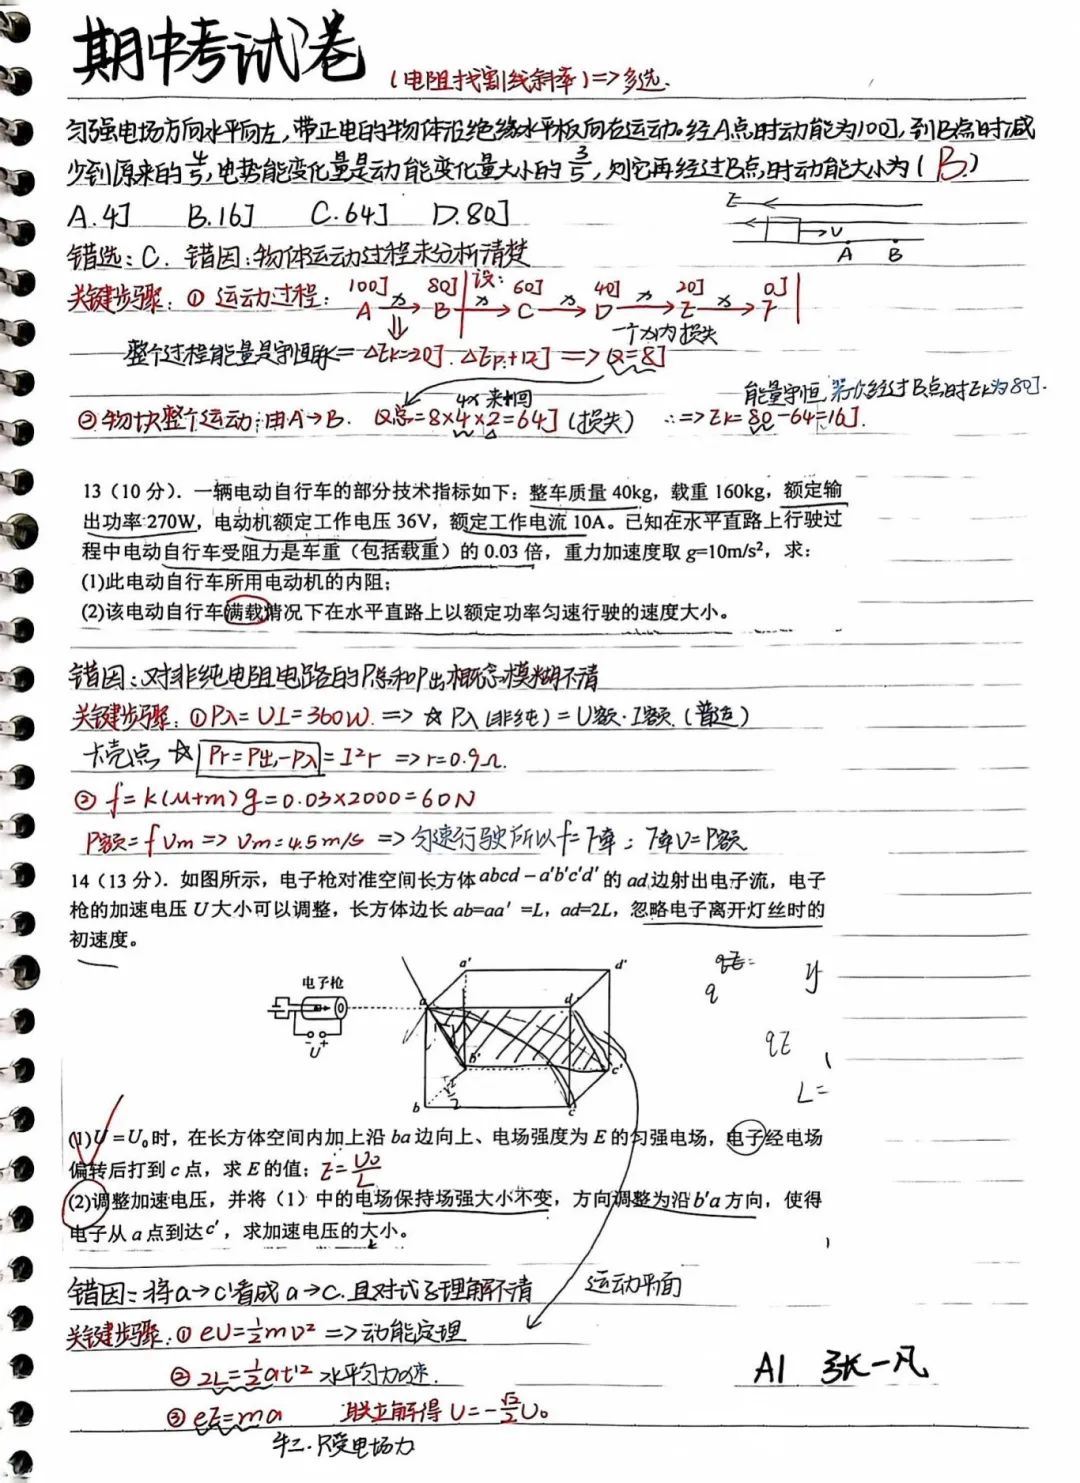 期中考试卷 (电阻找割线斜率)=>多选.
匀强电场方向水平向左,带正电的物体沿绝缘水平板向右运动。经A点时动能为100J,到B点时减
少到原来的4/5,电势能变化量是动能变化量大小的3/5,则它再经过B点时动能大小为(B)
A.4J B.16J C.64J D.80J
E
V
A B
错选:C. 错因:物体运动过程未分析清楚
关键步骤:① 运动过程: 100J 80J 设: 60J 40J 20J 0J
A x→ B x→ C x→ D x→ E x→ F
一个x内损失
整个过程能量是守恒 ΔEk=20J. ΔEp+12J => Q=8J
4x 来+回
能量守恒 第一次经过B点时Ek为80J.
②物块整个运动:由A→B. Q总=8×4×2=64J (损失) ∴=>Ek=80-64=16J.
13(10分).一辆电动自行车的部分技术指标如下:整车质量40kg,载重160kg,额定输
出功率270W,电动机额定工作电压36V,额定工作电流10A。已知在水平直路上行驶过
程中电动自行车受阻力是车重(包括载重)的0.03倍,重力加速度取g=10m/s²,求:
(1)此电动自行车所用电动机的内阻;
(2)该电动自行车满载情况下在水平直路上以额定功率匀速行驶的速度大小。
错因:对非纯电阻电路的P总和P出概念模糊不清
关键步骤:①P入=UI=360W. => ☆ P入(非纯)=U额·I额(普适)
卡壳点 ☆ Pr=P出-P入=I²r =>r=0.9Ω.
② f=k(M+m)g=0.03×2000=60N
P额=fVm => Vm=4.5m/s => 匀速行驶所以f=F牵;F牵V=P额
14(13分).如图所示,电子枪对准空间长方体abcd-a'b'c'd'的ad边射出电子流,电子
枪的加速电压U大小可以调整,长方体边长ab=aa'=L,ad=2L,忽略电子离开灯丝时的
初速度。
电子枪
- +
U
a' d'
a d
b' c'
b c
qE=
q
y
qE
L=
(1)U=U₀时,在长方体空间内加上沿ba边向上、电场强度为E的匀强电场,电子经电场
偏转后打到c点,求E的值; E=U₀/L
(2)调整加速电压,并将(1)中的电场保持场强大小不变,方向调整为沿b'a方向,使得
电子从a点到达c',求加速电压的大小。
错因:将a→c'看成a→c.且对式子理解不清 运动平面
关键步骤:① eU=½mv² =>动能定理
② 2L=½at² 水平匀加速.
③ eE=ma 联立解得U=-√2/2U₀
牛二.只受电场力
A1 张一凡